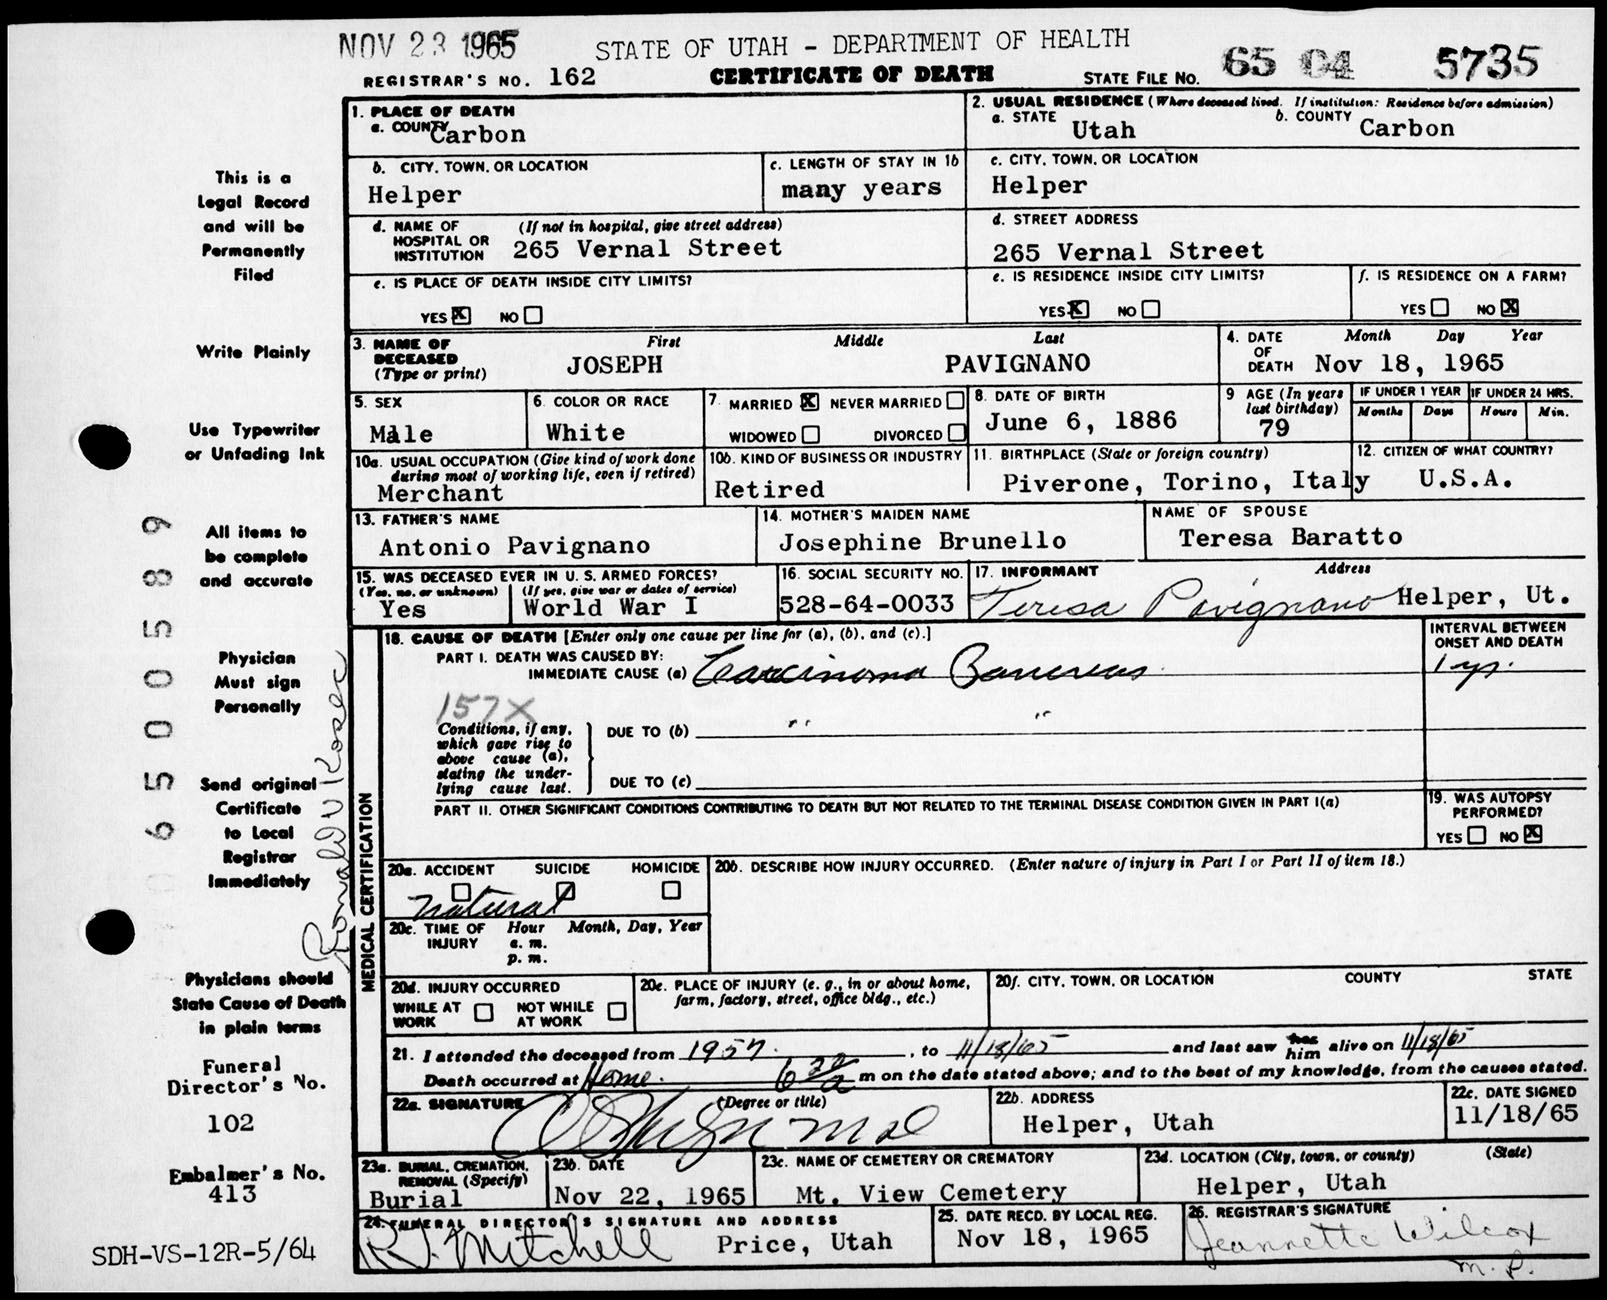 NOV 23 1965
STATE OF UTAH - DEPARTMENT OF HEALTH
REGISTRAR'S NO. 162 CERTIFICATE OF DEATH STATE FILE NO. 65 04 5735
1. PLACE OF DEATH
a. COUNTY Carbon
2. USUAL RESIDENCE (Where deceased lived. If institution: Residence before admission)
a. STATE Utah b. COUNTY Carbon
b. CITY, TOWN, OR LOCATION Helper
c. LENGTH OF STAY IN 1b many years
c. CITY, TOWN, OR LOCATION Helper
d. NAME OF HOSPITAL OR INSTITUTION (If not in hospital, give street address) 265 Vernal Street
d. STREET ADDRESS 265 Vernal Street
e. IS PLACE OF DEATH INSIDE CITY LIMITS? YES X NO
e. IS RESIDENCE INSIDE CITY LIMITS? YES X NO
f. IS RESIDENCE ON A FARM? YES NO X
3. NAME OF DECEASED (Type or print) First Middle Last
JOSEPH PAVIGNANO
4. DATE OF DEATH Month Day Year
Nov 18, 1965
5. SEX Male
6. COLOR OR RACE White
7. MARRIED X NEVER MARRIED
WIDOWED DIVORCED
8. DATE OF BIRTH June 6, 1886
9 AGE (In years last birthday) 79
IF UNDER 1 YEAR Months Days
IF UNDER 24 HRS. Hours Min.
10a. USUAL OCCUPATION (Give kind of work done during most of working life, even if retired) Merchant
10b. KIND OF BUSINESS OR INDUSTRY Retired
11. BIRTHPLACE (State or foreign country) Piverone, Torino, Italy
12. CITIZEN OF WHAT COUNTRY? U.S.A.
13. FATHER'S NAME Antonio Pavignano
14. MOTHER'S MAIDEN NAME Josephine Brunello
NAME OF SPOUSE Teresa Baratto
15. WAS DECEASED EVER IN U. S. ARMED FORCES?
(Yes, no, or unknown) Yes (If yes, give war or dates of service) World War I
16. SOCIAL SECURITY NO. 528-64-0033
17. INFORMANT Address
Teresa Pavignano Helper, Ut.
MEDICAL CERTIFICATION
18. CAUSE OF DEATH [Enter only one cause per line for (a), (b), and (c).]
INTERVAL BETWEEN ONSET AND DEATH
PART I. DEATH WAS CAUSED BY:
IMMEDIATE CAUSE (a) Carcinoma Pancreas 1 yr.
157X
Conditions, if any, which gave rise to above cause (a), stating the underlying cause last.
DUE TO (b) " "
DUE TO (c)
PART II. OTHER SIGNIFICANT CONDITIONS CONTRIBUTING TO DEATH BUT NOT RELATED TO THE TERMINAL DISEASE CONDITION GIVEN IN PART I(a)
19. WAS AUTOPSY PERFORMED?
YES NO X
20a. ACCIDENT SUICIDE HOMICIDE
natural
20b. DESCRIBE HOW INJURY OCCURRED. (Enter nature of injury in Part I or Part II of item 18.)
20c. TIME OF INJURY Hour a. m. p. m. Month, Day, Year
20d. INJURY OCCURRED
WHILE AT WORK NOT WHILE AT WORK
20e. PLACE OF INJURY (e. g., in or about home, farm, factory, street, office bldg., etc.)
20f. CITY, TOWN, OR LOCATION COUNTY STATE
21. I attended the deceased from 1957. , to 11/18/65 and last saw her him alive on 11/18/65
Death occurred at Home. 6 a m on the date stated above; and to the best of my knowledge, from the causes stated.
22a. SIGNATURE (Degree or title)
22b. ADDRESS Helper, Utah
22c. DATE SIGNED 11/18/65
23a. BURIAL, CREMATION, REMOVAL (Specify) Burial
23b. DATE Nov 22, 1965
23c. NAME OF CEMETERY OR CREMATORY Mt. View Cemetery
23d. LOCATION (City, town, or county) (State) Helper, Utah
24. FUNERAL DIRECTOR'S SIGNATURE AND ADDRESS
R J. Mitchell Price, Utah
25. DATE RECD. BY LOCAL REG. Nov 18, 1965
26. REGISTRAR'S SIGNATURE
Jeannette Wilcox
This is a
Legal Record
and will be
Permanently
Filed
Write Plainly
Use Typewriter
or Unfading Ink
All items to
be complete
and accurate
Physician
Must sign
Personally
Send original
Certificate
to Local
Registrar
Immediately
Physicians should
State Cause of Death
in plain terms
Funeral
Director's No.
102
Embalmer's No.
413
SDH-VS-12R-5/64
06500589